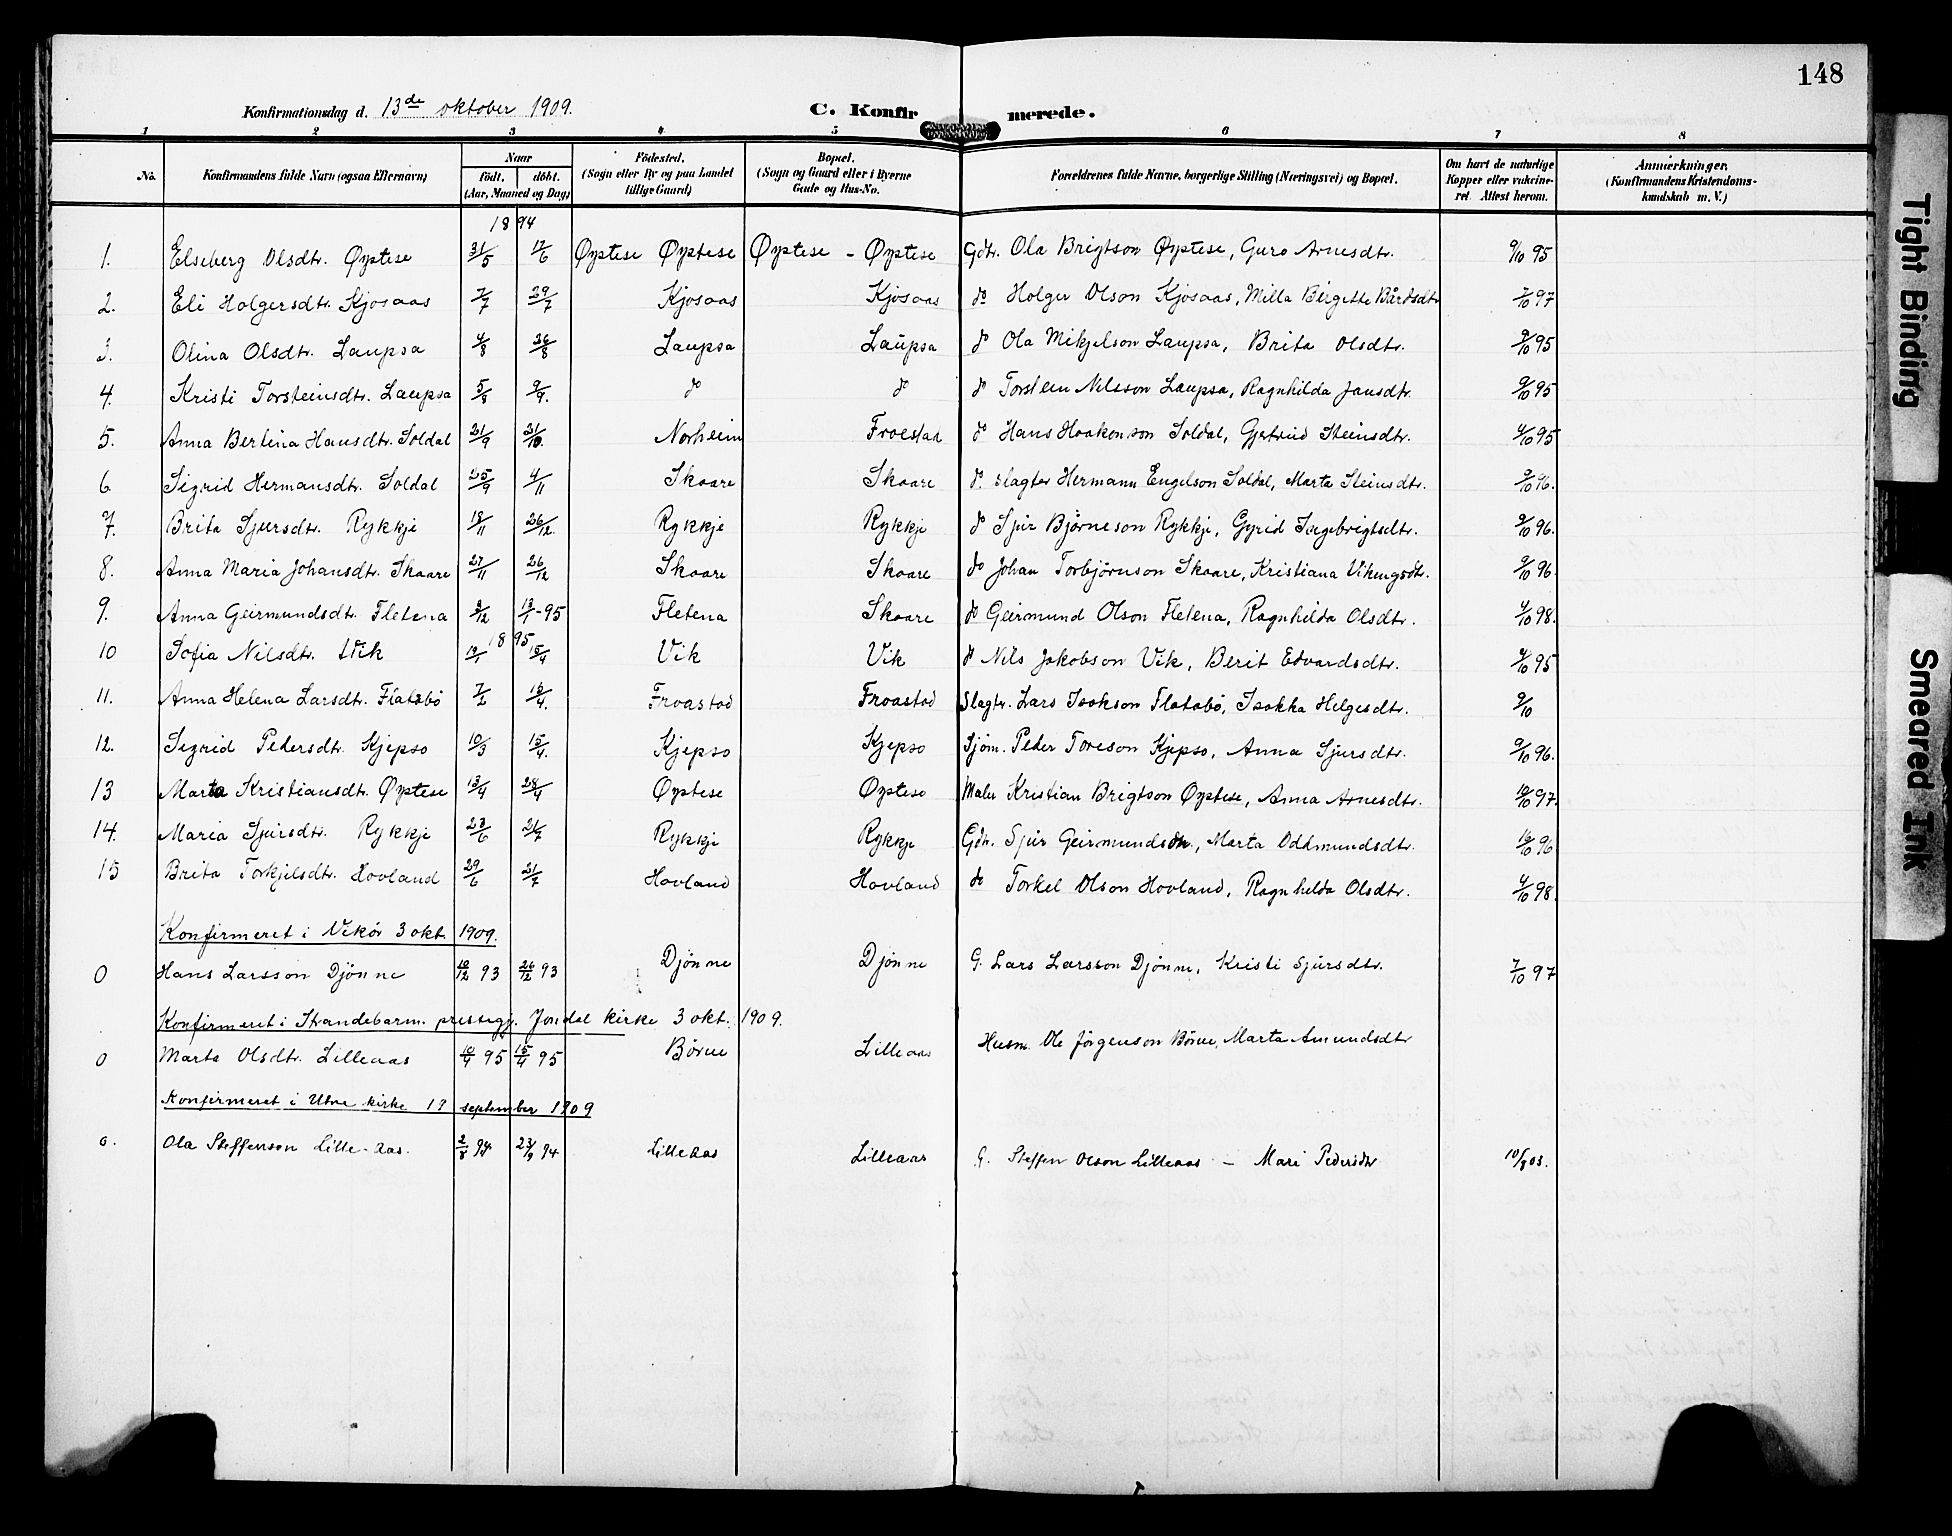 148
Konfirmationsdag d. 13de oktober 1909.
C. Konfirmerede.
1 2 3 4 5 6 7 8
No. Konfirmandens fulde Navn (ogsaa Efternavn) Naar født. døbt. (Aar, Maaned og Dag) Fødested. (Sogn eller By og paa Landet tillige Gaard) Bopæl. (Sogn og Gaard eller i Byerne Gade og Hus-No. Forældrenes fulde Navne, borgerlige Stilling (Næringsvei) og Bopæl. Om havt de naturlige Kopper eller vakcineret. Attest herom. Anmærkninger. (Konfirmandens Kristendomskundskab m. V.)
1894
1. Elseberg Olsdtr. Øystese 31/5 17/6 Øystese Øystese Øystese - Øystese Gdr. Ola Brigtson Øystese, Guro Arnesdtr. 9/10 95
2. Eli Holgersdtr. Kjosaas 7/7 29/7 Kjosaas Kjosaas do Holger Olson Kjosaas, Milla Birgitte Bårdsdtr 7/10 97
3. Olina Olsdtr. Laupsa 4/8 26/8 Laupsa Laupsa do Ola Mikjelson Laupsa, Brita Olsdtr. 9/10 95
4. Kristi Torsteinsdtr. Laupsa 5/8 9/9. do do do Torstein Nilsson Laupsa, Ragnhilda Jansdtr. 9/10 95
5. Anna Bertina Hansdtr. Soldal 21/9 21/10. Norheim Froestad do Hans Haakonson Soldal, Gjertrud Steinsdtr. 9/10 95
6. Sigrid Hermansdtr. Soldal 25/9 4/11 Skaare Skaare do. slagter Hermann Engelson Soldal, Marta Steinsdtr. 9/10 96.
7. Brita Sjursdtr. Rykkje 18/11 26/12. Rykkje Rykkje do Sjur Bjørneson Rykkje, Gyrid Ingebrigtsdtr. 9/10 96.
8. Anna Maria Johansdtr. Skaare 27/11 26/12 Skaare Skaare do Johan Torbjørnson Skaare, Kristiana Vikingsdtr. 9/10 96.
9. Anna Geirmundsdtr. Fletena 3/12 13/1-95 Fletena Skaare do Geirmund Olson Fletena, Ragnhilda Olsdtr. 9/10 98.
1895
10 Sofia Nilsdtr. Vik 19/1 15/4 Vik Vik do Nils Jakobson Vik, Berit Edvardsdtr. 9/10 95
11. Anna Helena Larsdtr. Flatabø 7/2 15/4. Froastad Froastad Slagtr. Lars Isakson Flatabø, Isakka Helgesdtr. 9/10
12. Sigrid Pedersdtr. Kjepso 10/3 15/4. Kjepso Kjepso Sjøm. Peder Toreson Kjepso, Anna Sjursdtr. 9/10 96.
13 Marta Kristiansdtr. Øystese 13/4 28/4 Øystese Øystese Maler Kristian Brigtson Øystese, Anna Arnesdtr. 10/10 97.
14. Maria Sjursdtr. Rykkje 23/6 21/7 Rykkje Rykkje Gdr. Sjur Geirmundsdn., Marta Oddmundsdtr. 16/10 96
15 Brita Torkjelsdtr. Hovland 29/6 21/7 Hovland Hovland do Torkel Olson Hovland, Ragnhilda Olsdtr. 9/10 98.
Konfirmeret i Vikør 3 okt. 1909.
0 Hans Larsson Djønne 10/12 93 26/12 93 Djønne Djønne G. Lars Larsson Djønne, Kristi Sjursdtr. 7/10 97
Konfirmeret i Strandebarm. prestegj. Jondal kirke 3 okt. 1909.
0 Marta Olsdtr. Lilleaas 10/4 95 15/4 95 Børve Lilleaas Husm. Ole Jørgenson Børve, Marta Amundsdtr
Konfirmeret i Utne kirke 19 september 1909
0. Ola Steffenson Lille-aas. 2/8 94 23/9 94 Lilleaas Lilleaas G. Steffen Olson Lilleaas - Mari Pedersdtr 10/8 03.
Tight Binding
Smeared Ink